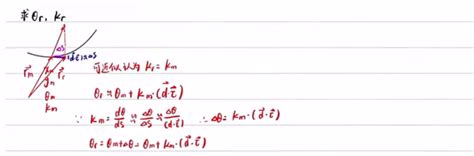 求θr, kr
Δs
(d⃗·τ⃗)≈Δs
r⃗m
r⃗r
θm
km
可近似认为 kr = km
θr ≈ θm + km·(d⃗·τ⃗)
∵ km = dθ/ds ≈ Δθ/Δs ≈ Δθ/(d⃗·τ⃗) ∴ Δθ = km·(d⃗·τ⃗)
θr = θm + Δθ = θm + km·(d⃗·τ⃗)